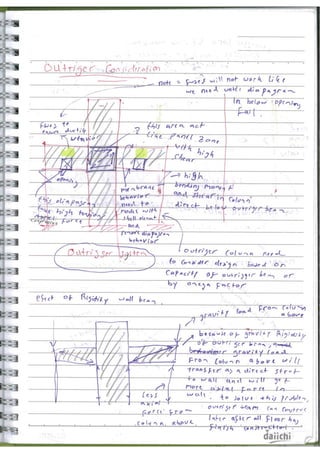 Outriger Consideration
note = fuses will not work like
we need wall diapagram
In below opening
Fail.
Fuses to
ensure ductile
behavior
? this area act
like panel zone
with high
shear
opening
high
bending moment
and shear in column
direct below outriger beam.
membrane
behavior
need to
model with
shell element
and
diapagram
behavior
this diapagram
have high tension
force
Outriger system
outriger column need
to consider design based on
capacity of outrigger beam or
by omega factor
effect of Rigidity wall beam.
gravity load from column
above
because of gravity Rigidity
of outriger beam,
gravity load
from column above will
transfer as a direct strut
to wall and will get
more axial force in
wall. to solve this problem,
outriger beam can construct
later after all floor has
finish construction
less
axial
force from
column above
daiichi